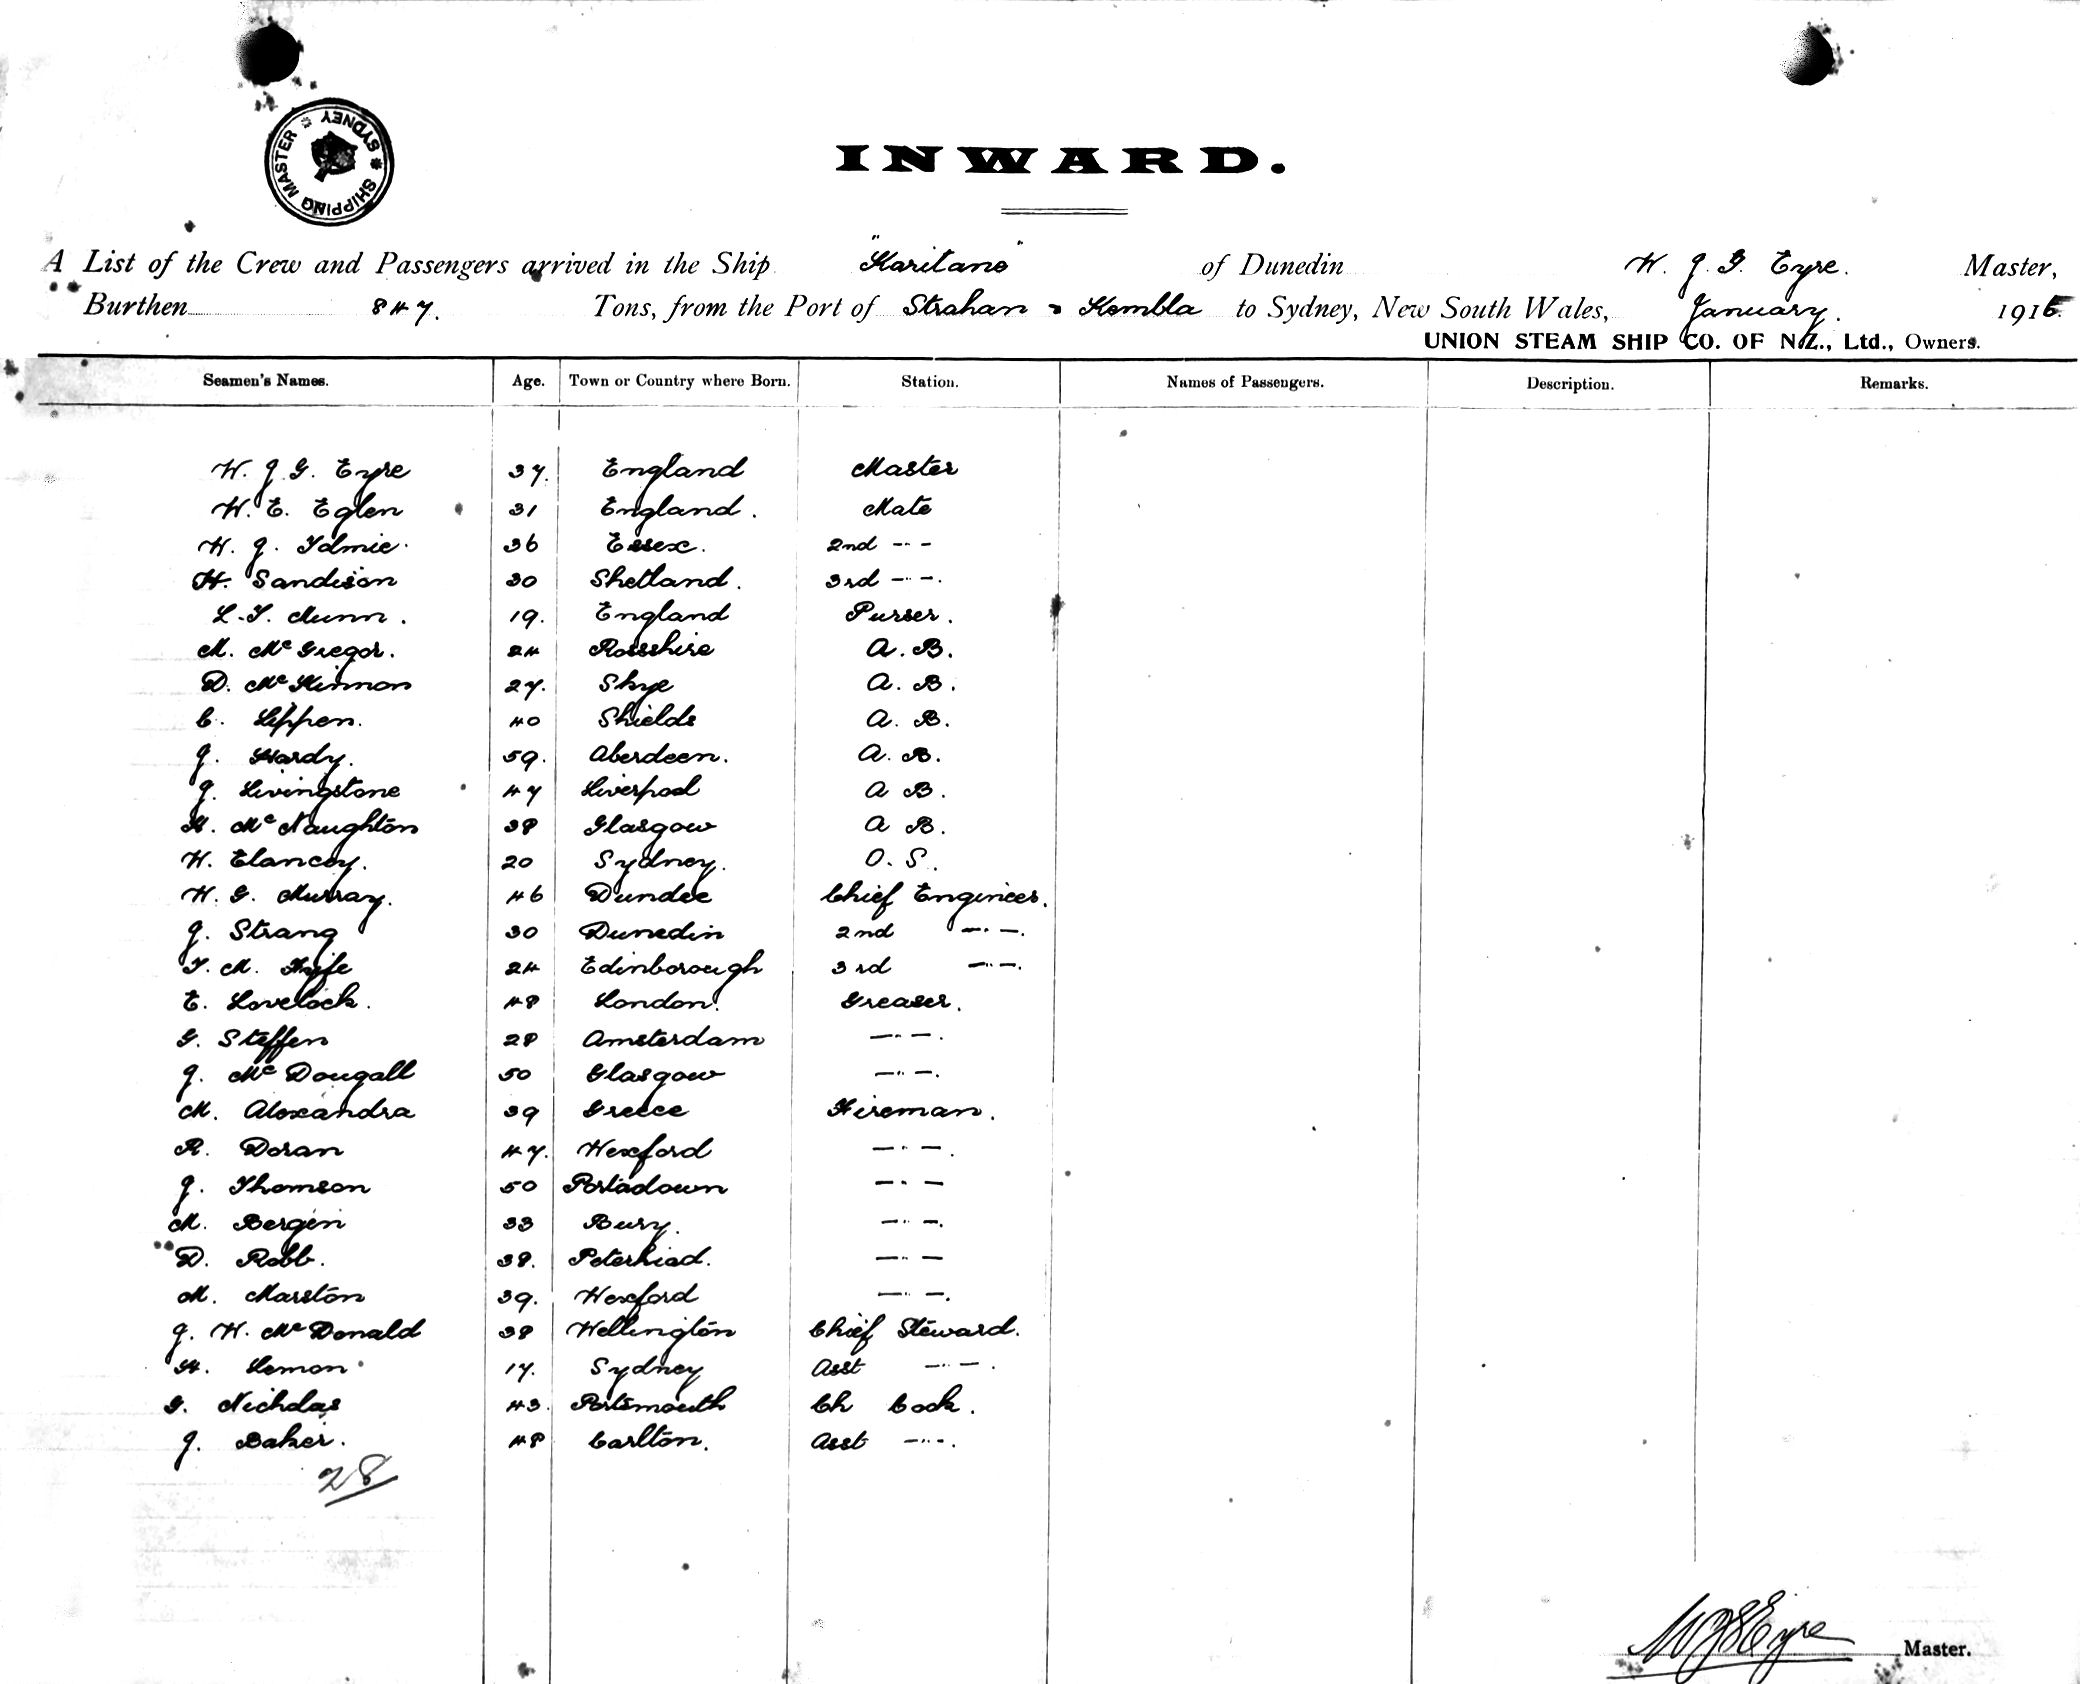 SHIPPING MASTER * SYDNEY *
INWARD.
A List of the Crew and Passengers arrived in the Ship "Karitane" of Dunedin W. J. G. Eyre. Master,
Burthen 847. Tons, from the Port of Strahan & Kembla to Sydney, New South Wales, January. 1916
UNION STEAM SHIP CO. OF N.Z., Ltd., Owners.
Seamen's Names. Age. Town or Country where Born. Station. Names of Passengers. Description. Remarks.
W. J. G. Eyre 37. England Master
W. E. Eglen 31 England. Mate
W. J. Idmie. 36 Essex. 2nd -"-
H. Sandison 30 Shetland. 3rd -"-.
L. T. Munn. 19. England Purser.
M. McGregor. 24 Rosshire A. B.
D. McKinnon 27. Skye A. B.
C. Lippen. 40 Shields A. B.
J. Hardy. 59. Aberdeen. A. B.
J. Livingstone 47 Liverpool A B.
H. McNaughton 38 Glasgow A B.
W. Clancey. 20 Sydney. O. S.
W. G. Murray. 46 Dundee Chief Engineer.
J. Strang 30 Dunedin 2nd -"-.
T. M. Fyfe 24 Edinborough 3rd -"-.
E. Lovelock. 48 London. Greaser.
G. Steffen 28 Amsterdam -"-.
J. McDougall 50 Glasgow -"-.
M. Alexandra 39 Greece Fireman.
R. Doran 47. Wexford -"-.
J. Thomson 50 Portadown -"-
M. Bergin 33 Bury. -"-.
D. Robb. 38. Peterhead. -"-
M. Marston 39. Wexford -"-.
J. W. McDonald 38 Wellington Chief Steward.
H. Lemon 17. Sydney Asst -"-.
G. Nicholas 43. Portsmouth Ch Cook.
J. Baker. 48 Carlton. Asst -"-.
28
WJGEyre Master.